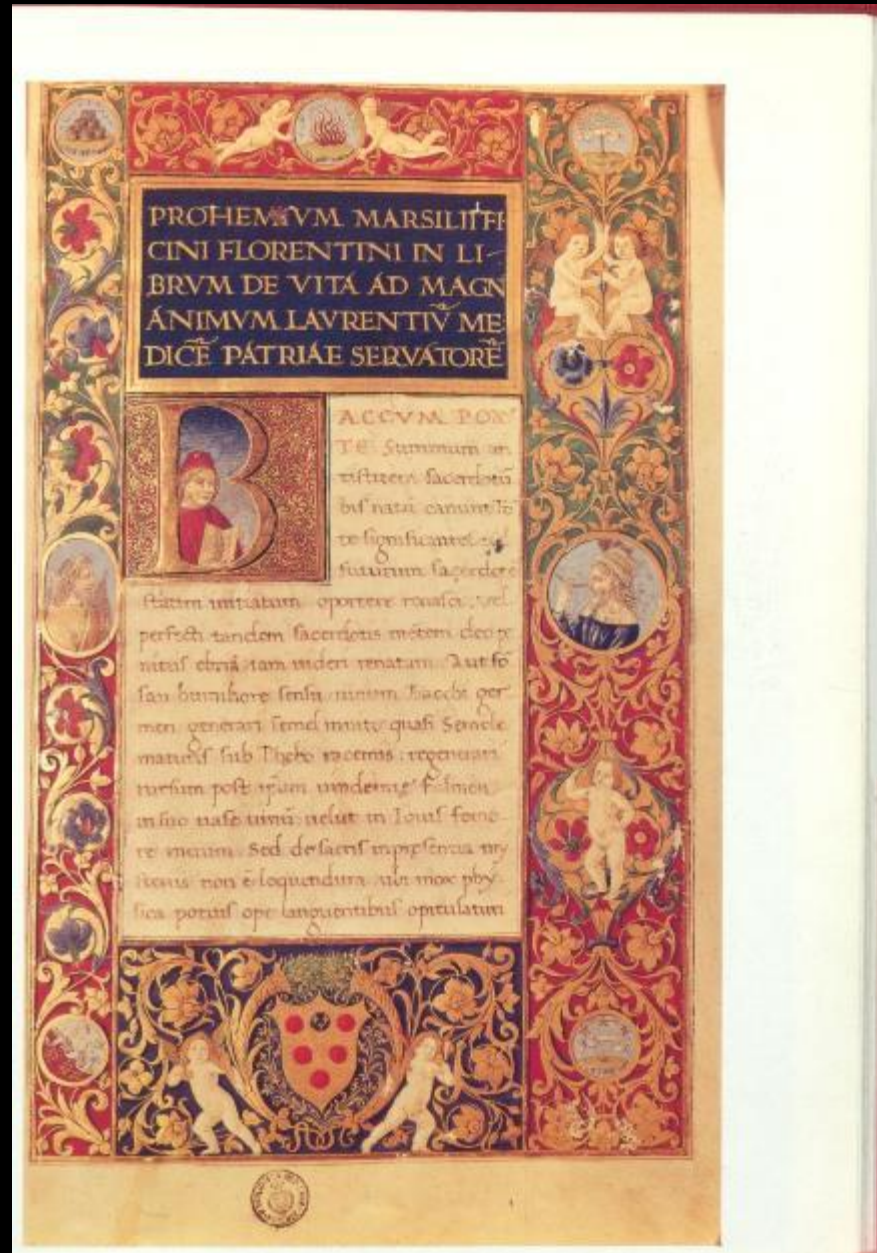 PROHEMIVM MARSILII FI
CINI FLORENTINI IN LI-
BRVM DE VITA AD MAGN
ANIMVM LAVRENTIV̄ ME
DICĒ PATRIAE SERVATORĒ
BACCVM POE
TE Summum an
tistitem sacerdotū
bis natū canunt fo
te significantes vel
futurum sacerdote
statim initiatum oportere renasci, vel
perfecti tandem sacerdotis mētem deo pe
nitus ebriā iam videri renatam. Aut fo
san humiliore sensu vinum Bacchi ger
men generari semel in vite quasi Semele
maturis sub Phebo racemis: regenerari
rursum post ipsum vindemie Fulmen
in suo vase vinū velut in Iouis femo
re merum. Sed de sacris in presentia my
steriis non ē loquendum ubi mox phy
sica potius ope languentibus opitulaturi